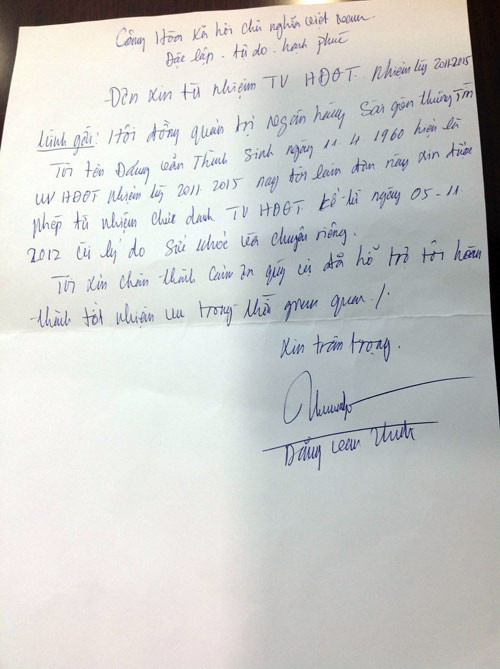 Cộng Hòa Xã hội chủ nghĩa Việt Nam
Độc lập - tự do - hạnh phúc
Đơn xin từ nhiệm TV HĐQT. Nhiệm kỳ 2011-2015
Kính gửi: Hội đồng quản trị Ngân hàng Sài gòn thương tín
Tôi tên Đặng Văn Thành Sinh ngày 11.4.1960 hiện là
UV HĐQT Nhiệm kỳ 2011-2015 nay tôi làm đơn này xin được
phép từ nhiệm chức danh TV HĐQT kể từ ngày 05-11
2012 vì lý do sức khỏe và chuyện riêng.
Tôi xin chân thành cảm ơn quý vị đã hỗ trợ tôi hoàn
thành tốt nhiệm vụ trong thời gian qua./.
Xin trân trọng.
Đặng Văn Thành